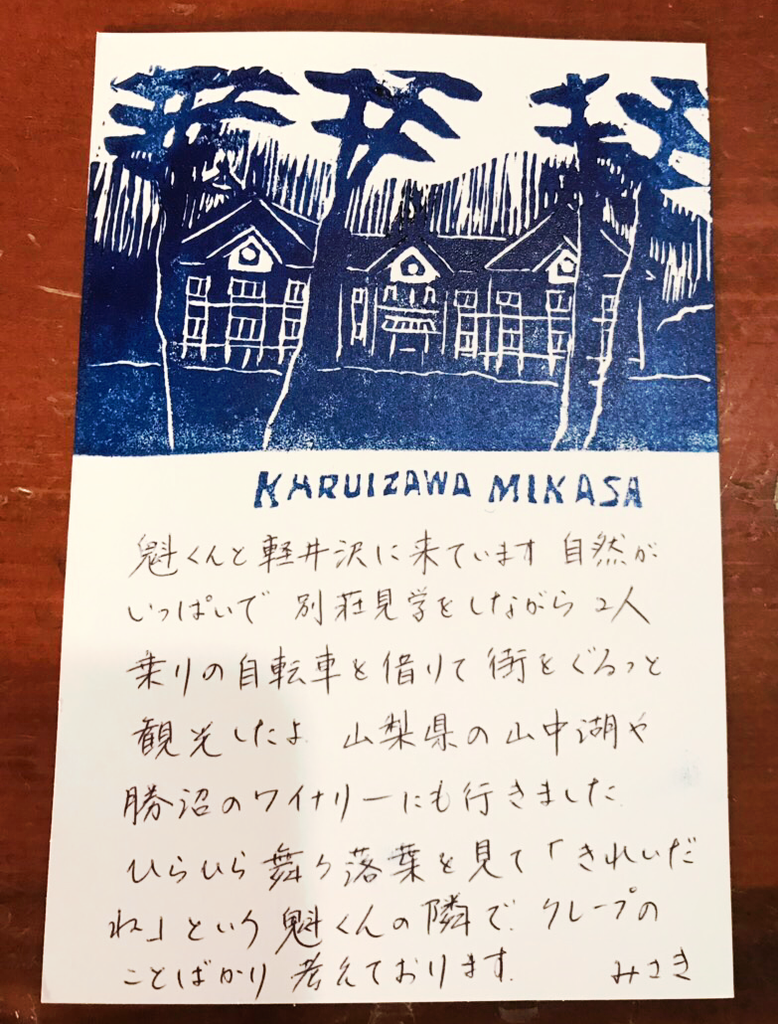 KARUIZAWA MIKASA
魁くんと軽井沢に来ています 自然が
いっぱいで 別荘見学をしながら2人
乗りの自転車を借りて街をぐるっと
観光したよ 山梨県の山中湖や
勝沼のワイナリーにも行きました
ひらひら舞う落葉を見て「きれいだ
ね」という魁くんの隣で、クレープの
ことばかり考えております。 みさき